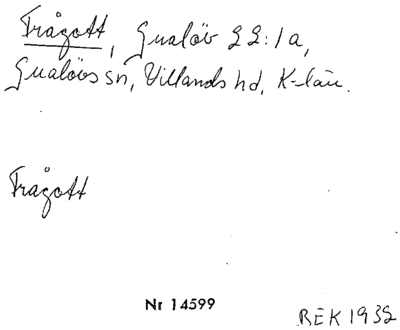 Trågott, Gualöv 22:1a,
Gualövs sn, Villands hd, K-län.
Trågott
Nr 14599
BEK 1932